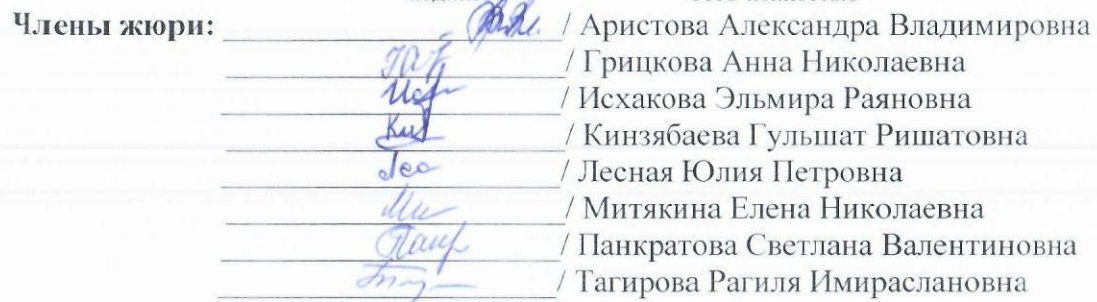 Члены жюри: / Аристова Александра Владимировна
/ Грицкова Анна Николаевна
/ Исхакова Эльмира Раяновна
/ Кинзябаева Гульшат Ришатовна
/ Лесная Юлия Петровна
/ Митякина Елена Николаевна
/ Панкратова Светлана Валентиновна
/ Тагирова Рагиля Имираслановна